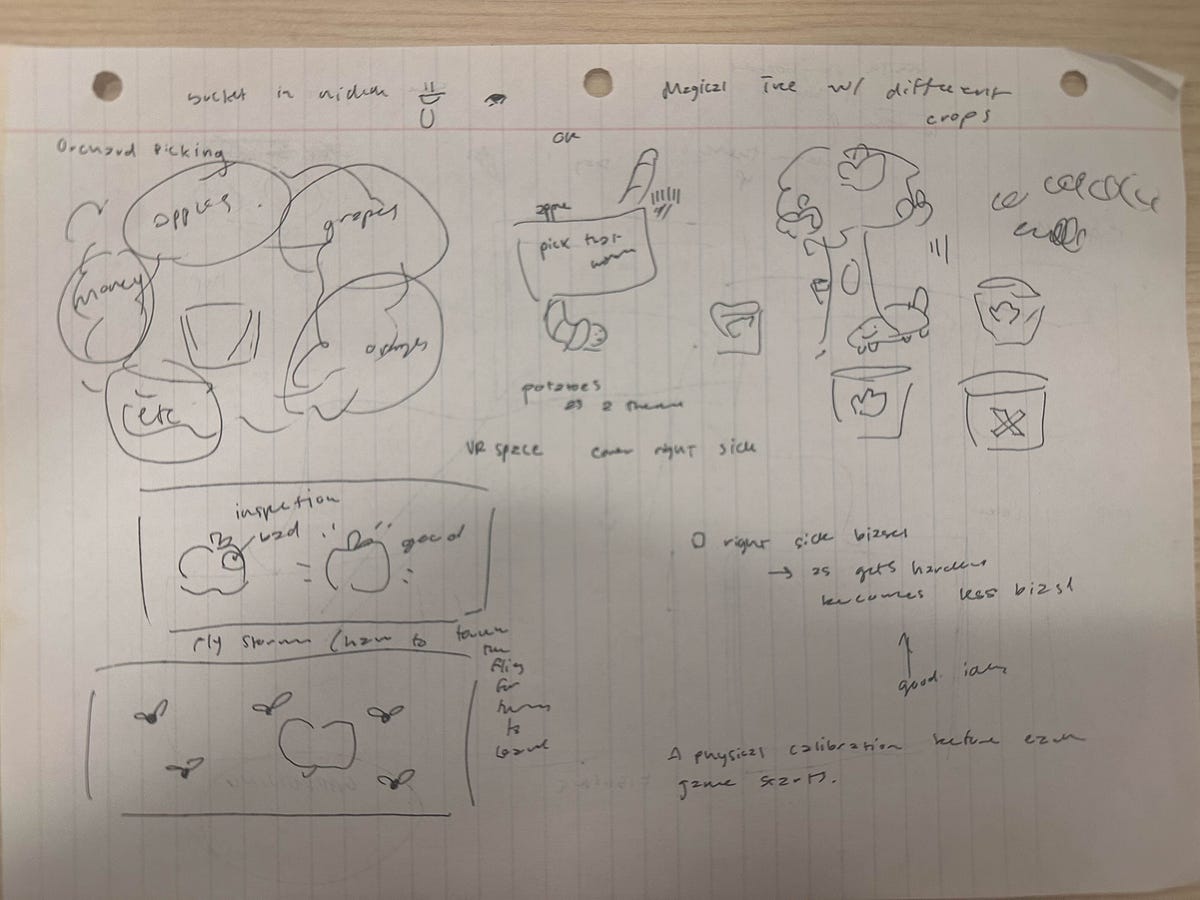 bucket in
Magical Tree w/ different
crops
Orchard Picking
or
apples
grapes
money
etc
apple
pick that
worm
potatoes
as a theme
VR space cover right side
inspection
bad
good
fly storm (have to touch
the
flies
for
them
to
leave
right side biased
→ as gets harder
becomes less biased
good idea
A physical calibration before each
game starts.